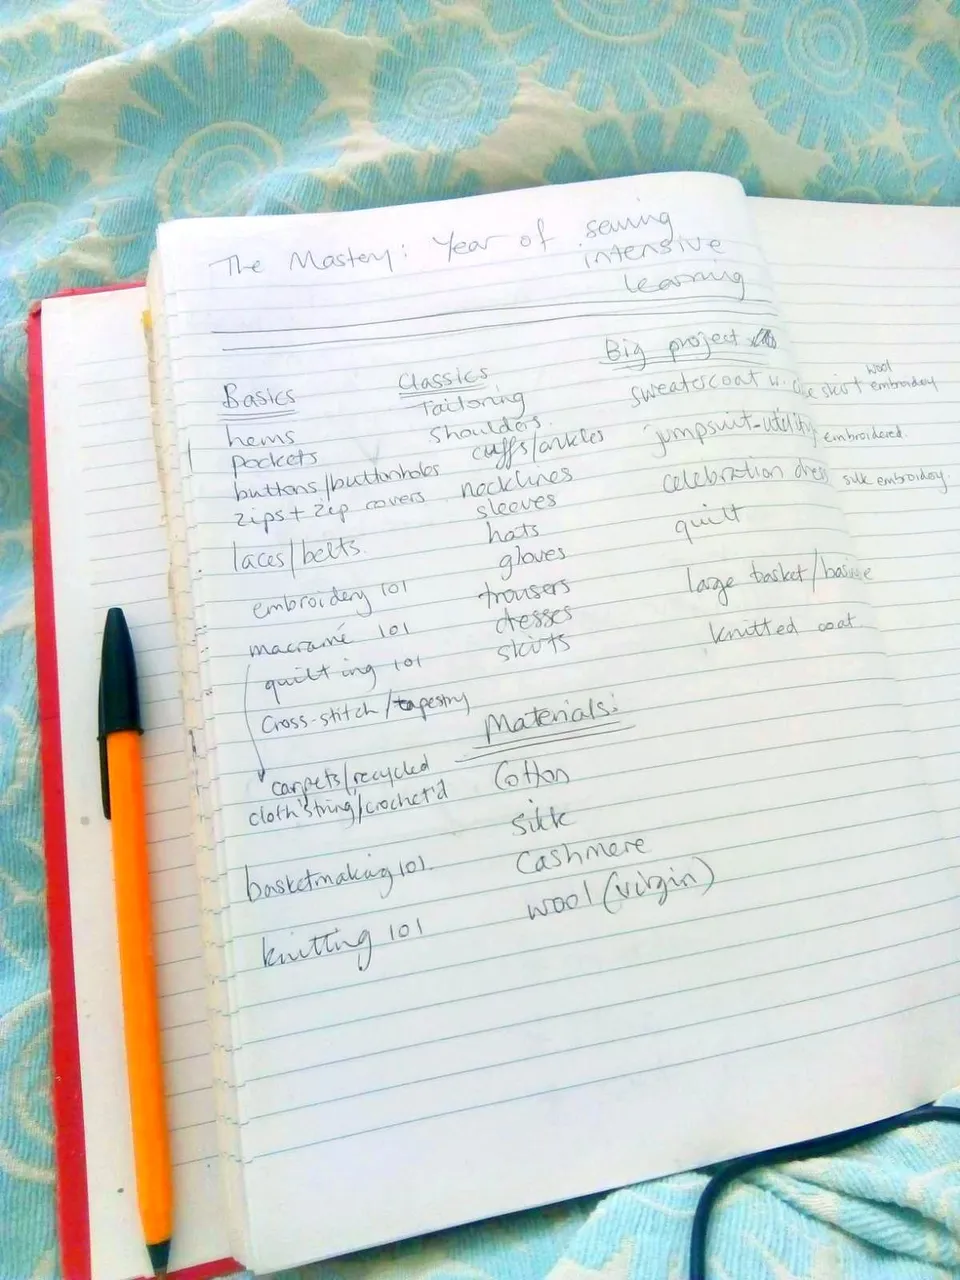 The Mastery: Year of sewing
intensive
learning
Basics
hems
pockets
buttons/buttonholes
zips + zip covers
laces/belts.
embroidery 101
macramé 101
quilting 101
Cross-stitch/tapestry
carpets/recycled
cloth 'string'/crochet'd
basketmaking 101.
knitting 101
Classics
Tailoring
Shoulders.
cuffs/ankles
necklines
sleeves
hats
gloves
trousers
dresses
skirts
Big project
sweatercoat w. skirt wool embroidery
jumpsuit-utility embroidered.
celebration dress silk embroidery.
quilt
large basket/
knitted coat
Materials:
Cotton
Silk
Cashmere
wool (virgin)